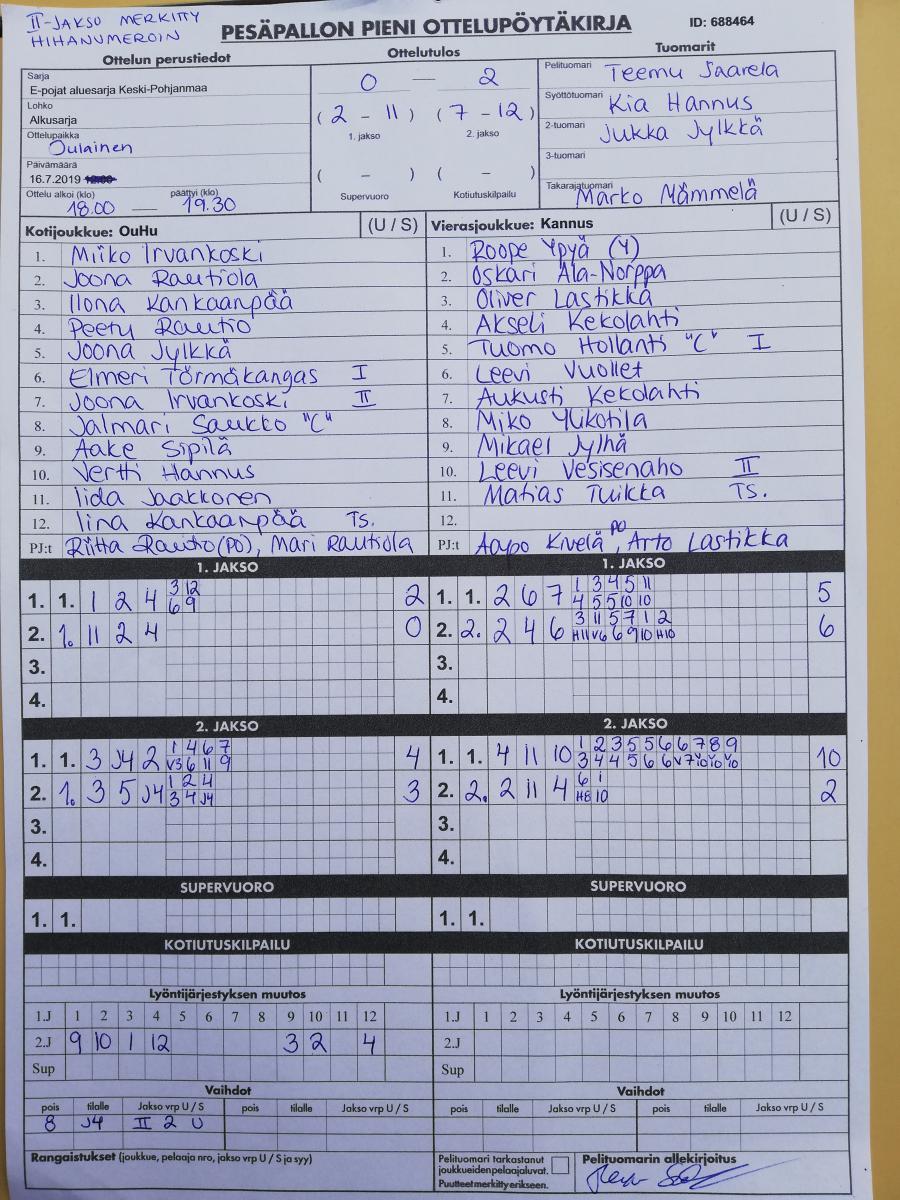 II-JAKSO MERKITTY
HIHANUMEROIN
PESÄPALLON PIENI OTTELUPÖYTÄKIRJA
ID: 688464
Ottelun perustiedot
Sarja
E-pojat aluesarja Keski-Pohjanmaa
Lohko
Alkusarja
Ottelupaikka
Oulainen
Päivämäärä
16.7.2019
Ottelu alkoi (klo) päättyi (klo)
18.00 — 19.30
Ottelutulos
0 — 2
( 2 - 11 ) ( 7 - 12 )
1. jakso 2. jakso
( - ) ( - )
Supervuoro Kotiutuskilpailu
Tuomarit
Pelituomari Teemu Saarela
Syöttötuomari Kia Hannus
2-tuomari Jukka Jylkkä
3-tuomari
Takarajatuomari Marko Mämmelä
Kotijoukkue: OuHu (U / S)
1. Miiko Irvankoski
2. Joona Rautiola
3. Ilona Kankaanpää
4. Peetu Rautio
5. Joona Jylkkä
6. Elmeri Törmäkangas I
7. Joona Irvankoski II
8. Jalmari Saukko "C"
9. Aake Sipilä
10. Vertti Hannus
11. Iida Jaakkonen
12. Iina Kankaanpää TS.
PJ:t Riitta Rautio (PO), Mari Rautiola
Vierasjoukkue: Kannus (U / S)
1. Roope Ypyä (Y)
2. Oskari Ala-Norppa
3. Oliver Lastikka
4. Akseli Kekolahti
5. Tuomo Hollanti "C" I
6. Leevi Vuollet
7. Aukusti Kekolahti
8. Miko Ylikotila
9. Mikael Jylhä
10. Leevi Vesisenaho II
11. Matias Tuikka TS.
12.
PJ:t Aapo Kivelä PO, Arto Lastikka
1. JAKSO
1. 1. 1 2 4 3 12 2
6 9
2. 1. 11 2 4 0
3.
4.
1. JAKSO
1. 1. 2 6 7 1 3 4 5 11 5
4 5 5 10 10
2. 2. 2 4 6 3 11 5 7 1 2 6
H11 V6 6 9 10 H10
3.
4.
2. JAKSO
1. 1. 3 J4 2 1 4 6 7 4
V3 6 11 9
2. 1. 3 5 J4 1 2 4 3
3 4 J4
3.
4.
2. JAKSO
1. 1. 4 11 10 1 2 3 5 5 6 6 7 8 9 10
3 4 4 5 6 6 V7
2. 2. 2 11 4 6 1 2
H8 10
3.
4.
SUPERVUORO
1. 1.
SUPERVUORO
1. 1.
KOTIUTUSKILPAILU
KOTIUTUSKILPAILU
Lyöntijärjestyksen muutos
1.J 1 2 3 4 5 6 7 8 9 10 11 12
2.J 9 10 1 12 3 2 4
Sup
Lyöntijärjestyksen muutos
1.J 1 2 3 4 5 6 7 8 9 10 11 12
2.J
Sup
Vaihdot
pois tilalle Jakso vrp U / S pois tilalle Jakso vrp U / S
8 J4 II 2 U
Vaihdot
pois tilalle Jakso vrp U / S pois tilalle Jakso vrp U / S
Rangaistukset (joukkue, pelaaja nro, jakso vrp U / S ja syy)
Pelituomari tarkastanut
joukkueiden pelaajaluvat.
Puutteet merkitty erikseen.
Pelituomarin allekirjoitus